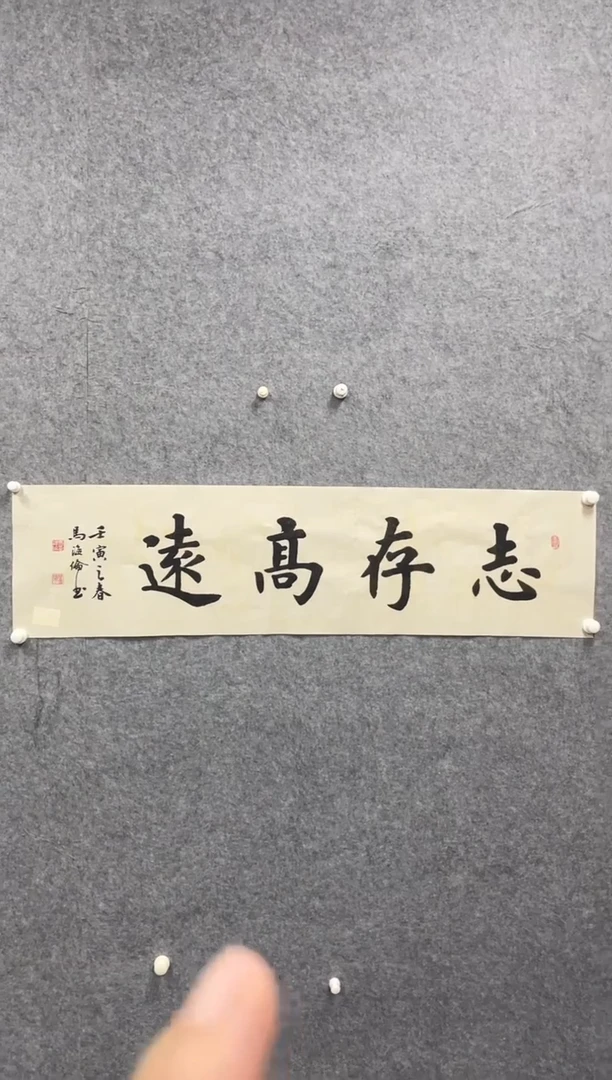 志存高遠
壬寅之春
馬海倫书